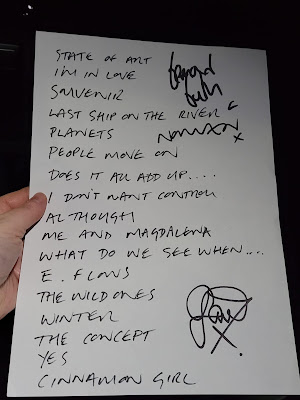 STATE OF ART
I'M IN LOVE
SOUVENIR
LAST SHIP ON THE RIVER
PLANETS
PEOPLE MOVE ON
DOES IT ALL ADD UP....
I DON'T WANT CONTROL
ALTHOUGH
ME AND MAGDALENA
WHAT DO WE SEE WHEN....
E. FLOWS
THE WILD ONES
WINTER
THE CONCEPT
YES
CINNAMON GIRL